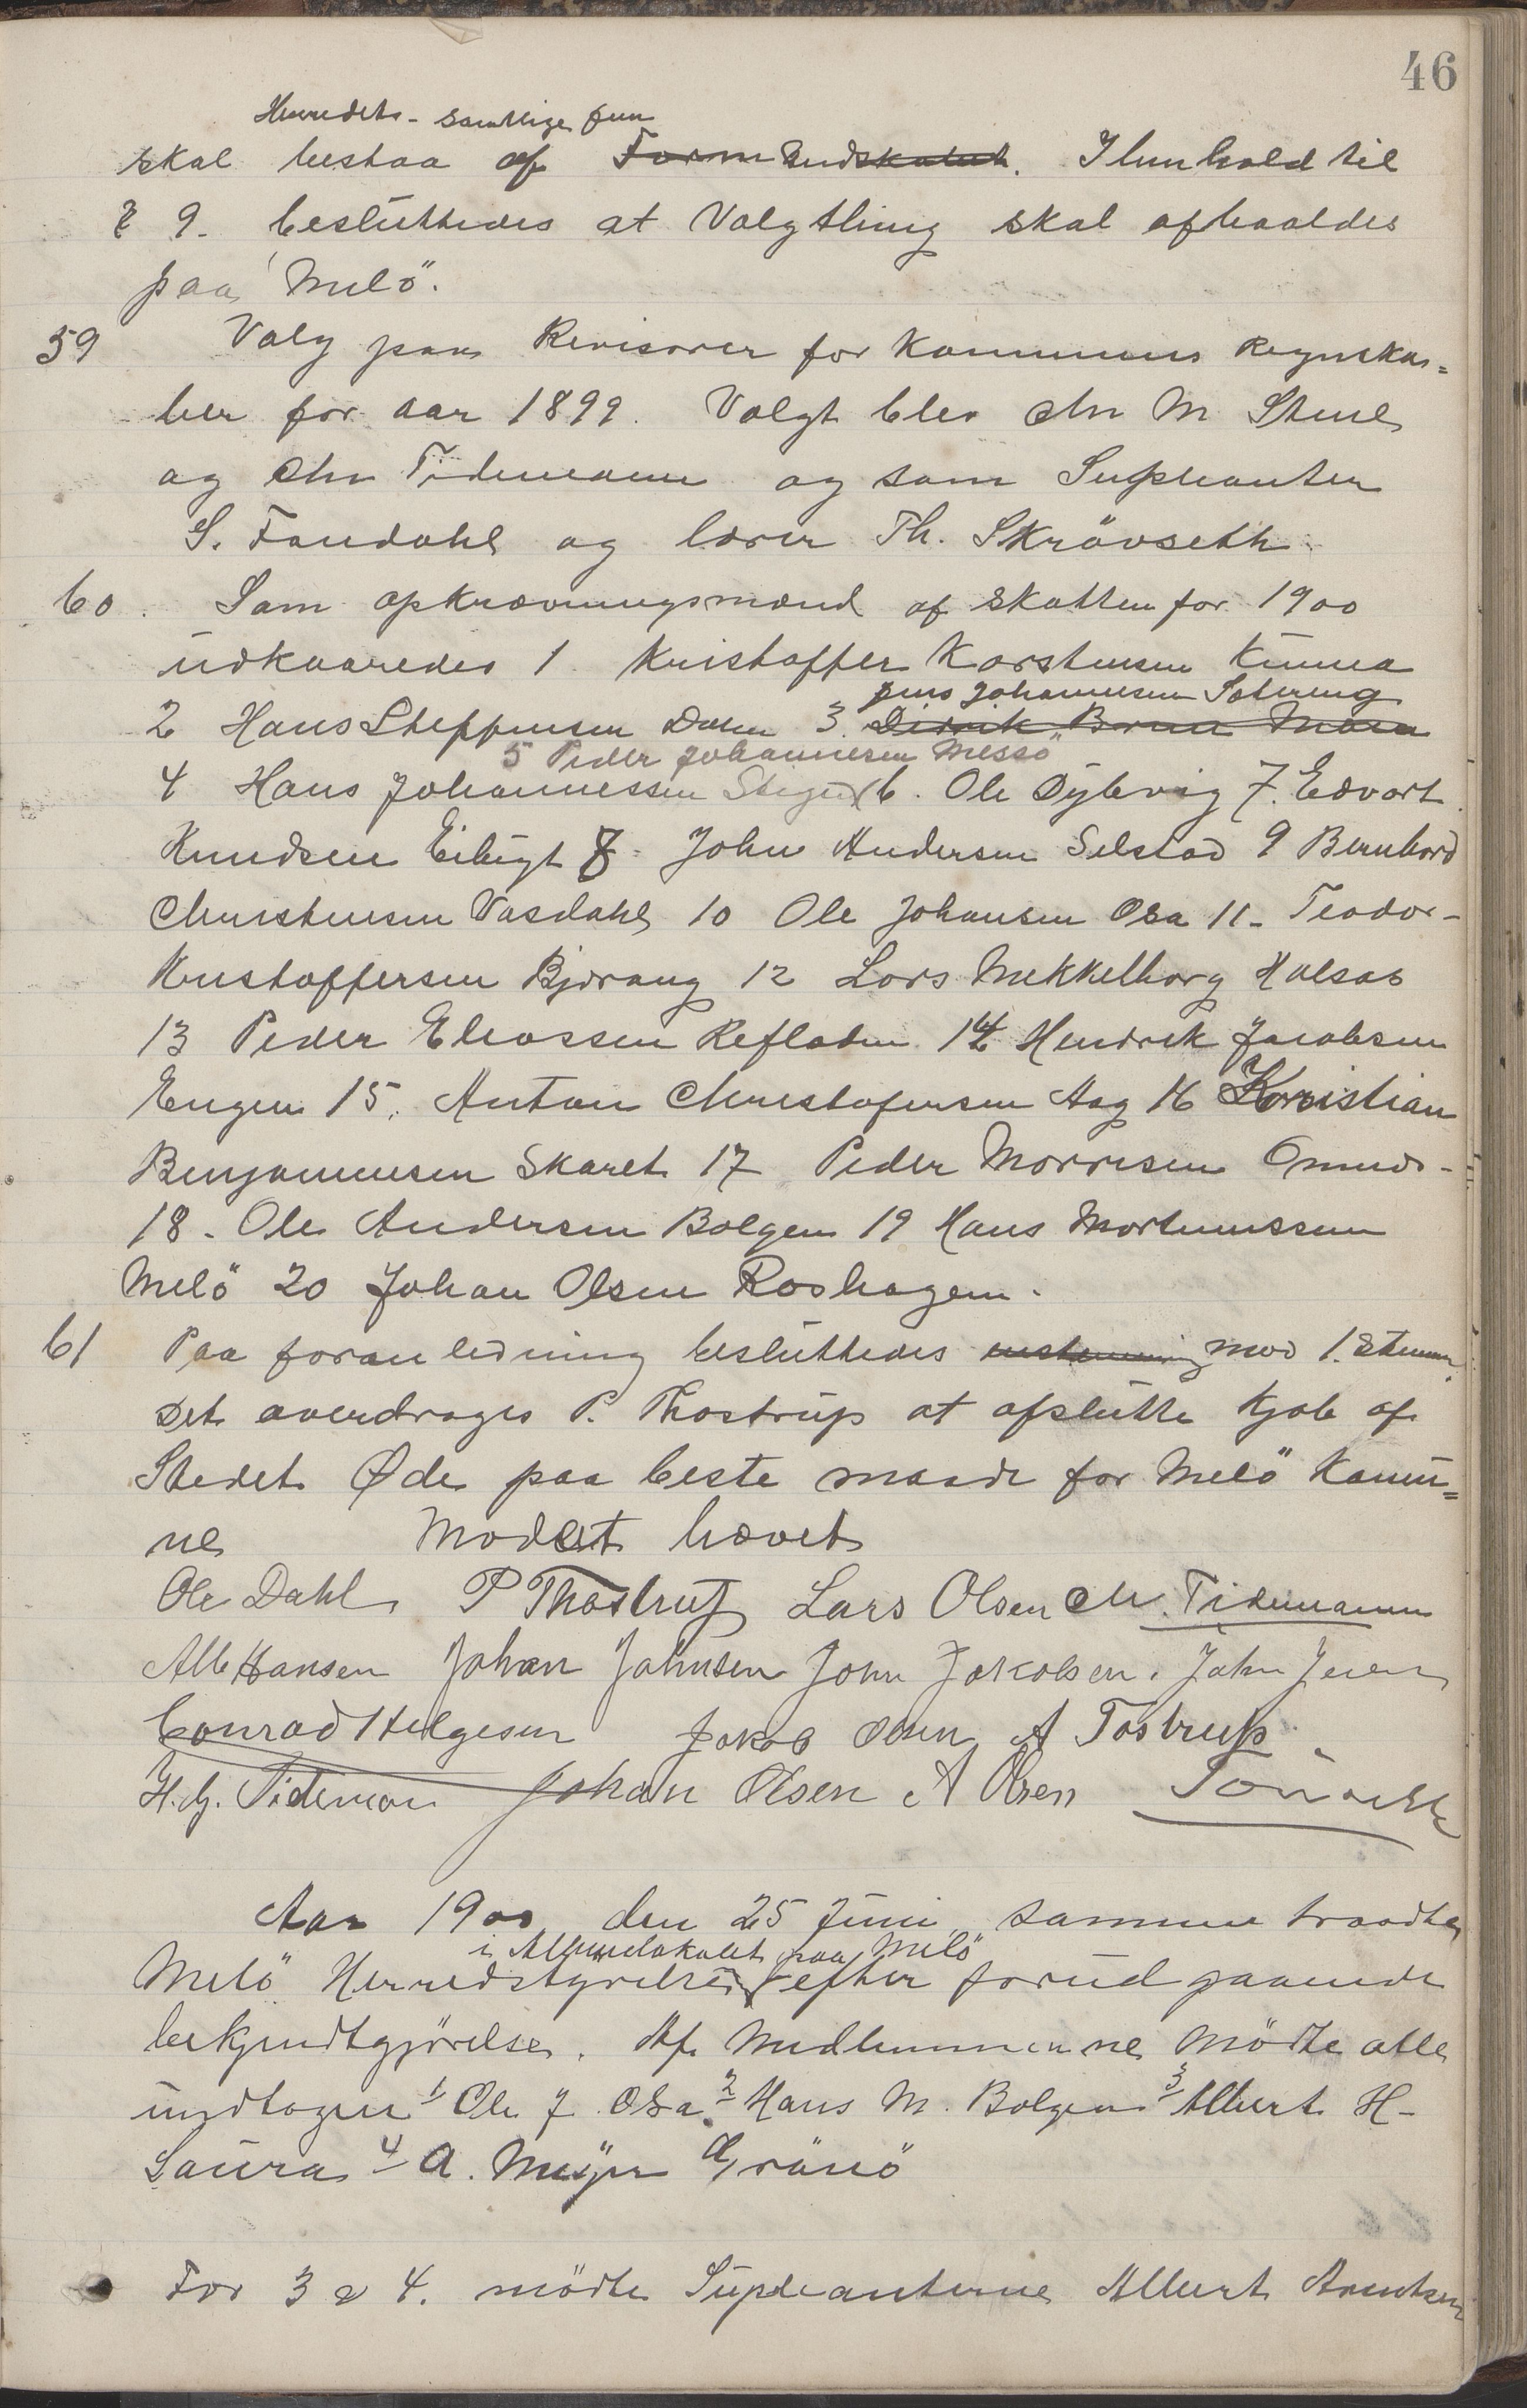 46
Herredets samtlige
skal bestaa af Formandskabet. I henhold til
§ 9. besluttedes at Valgthing skal afhaaldes
paa Melö.
59 Valg paa Revisorer for Kommunens Regnska=
ber for aar 1899. Valgt blev Chr M Stene
og Chr Tidemann og som Supleanter
S. Fondahl og lærer Th. Skrövseth
60. Som opkrævningsmænd af skatten for 1900
udkaaredes 1. Kristoffer Karstensen Kunna
Jens Johannesen Sætereng
2 Hans Steffensen Dalen 3. Didrik Brun Moen
5 Peder Johannesen Messö
4 Hans Johannessen Stigen 6. Ole Dybvig 7. Edvart
Knudsen Eihugt 8. John Andersen Selstad 9 Bernhard
Christensen Vasdahl 10 Ole Johansen Osa 11- Teodor-
Kristoffersen Bjærang 12 Lars Mekkelborg Halsas
13 Peder Eliassen Refladen 14 Hendrik Jacobsen
Engen 15. Anton Christofersen Aag 16 Kristian
Benjaminsen Skaret 17 Peder Morrisen Omnes-
18. Ole Andersen Bolgen 19 Hans Mortenssen
Melö 20 Johan Olsen Roshagen.
61 Paa foranledning besluttedes enstemmig mod 1. Stemme
Det overdrages P. Thostrup at afslutte Kjøb af
Stedet Øde paa beste maade for Melö Komu=
ne Modet hævet
Ole Dahl P Thostrup Lars Olsen Chr. Tidemann
Alb Hansen Johan Johnsen John Jakobsen. John Jensen
Conrad Helgesen Jakob Olsen A Tostrup
H. G. Tideman Johan Olsen A Olsen
Aar 1900 den 25 Juni sammen traadte
i Almuelokalet paa Melö
Melö Herredstyrelse efter forudgaaende
bekjendtgjörelse. Af Medlemmenne mödte alle
undtagen 1/ Ole J. Osa 2/ Hans M. Bolgen 3/ Albert H-
Saura 4/ A. Meyer Grönö
For 3 & 4. mödte Supleanterne Albert Arentsen